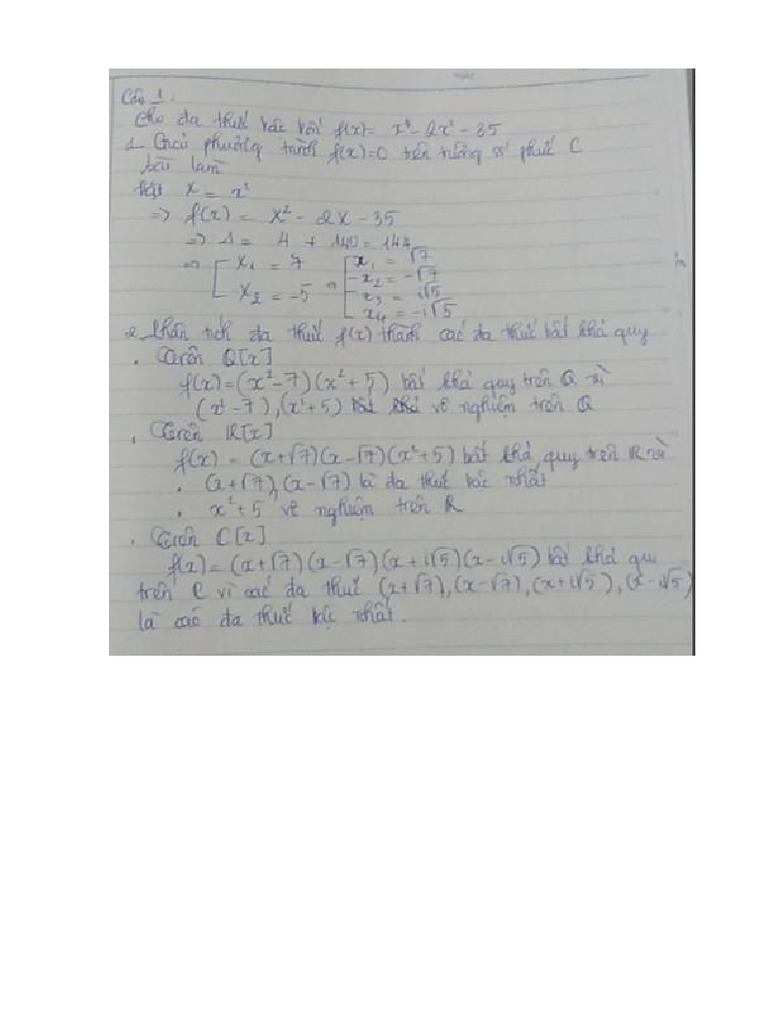 Câu 1.
Cho đa thức bậc bốn f(x) = x⁴ - 2x² - 35
1. Giải phương trình f(x)=0 trên trường số phức C
bài làm
Đặt X = x²
=> f(x) = X² - 2X - 35
=> Δ = 4 + 140 = 144
=> [ X₁ = 7 [ x₁ = √7
x₂ = -√7
X₂ = -5 x₃ = i√5
x₄ = -i√5
2. Phân tích đa thức f(x) thành các đa thức bất khả quy
. Trên Q[x]
f(x) = (x² - 7)(x² + 5) bất khả quy trên Q vì
(x² - 7), (x² + 5) bất khả vô nghiệm trên Q
. Trên R[x]
f(x) = (x+√7)(x-√7)(x²+5) bất khả quy trên R vì
. (x+√7), (x-√7) là đa thức bậc nhất
. x²+5 vô nghiệm trên R
. Trên C[x]
f(x) = (x+√7)(x-√7)(x+i√5)(x-i√5) bất khả quy
trên C vì các đa thức (x+√7), (x-√7), (x+i√5), (x-i√5)
là các đa thức bậc nhất.